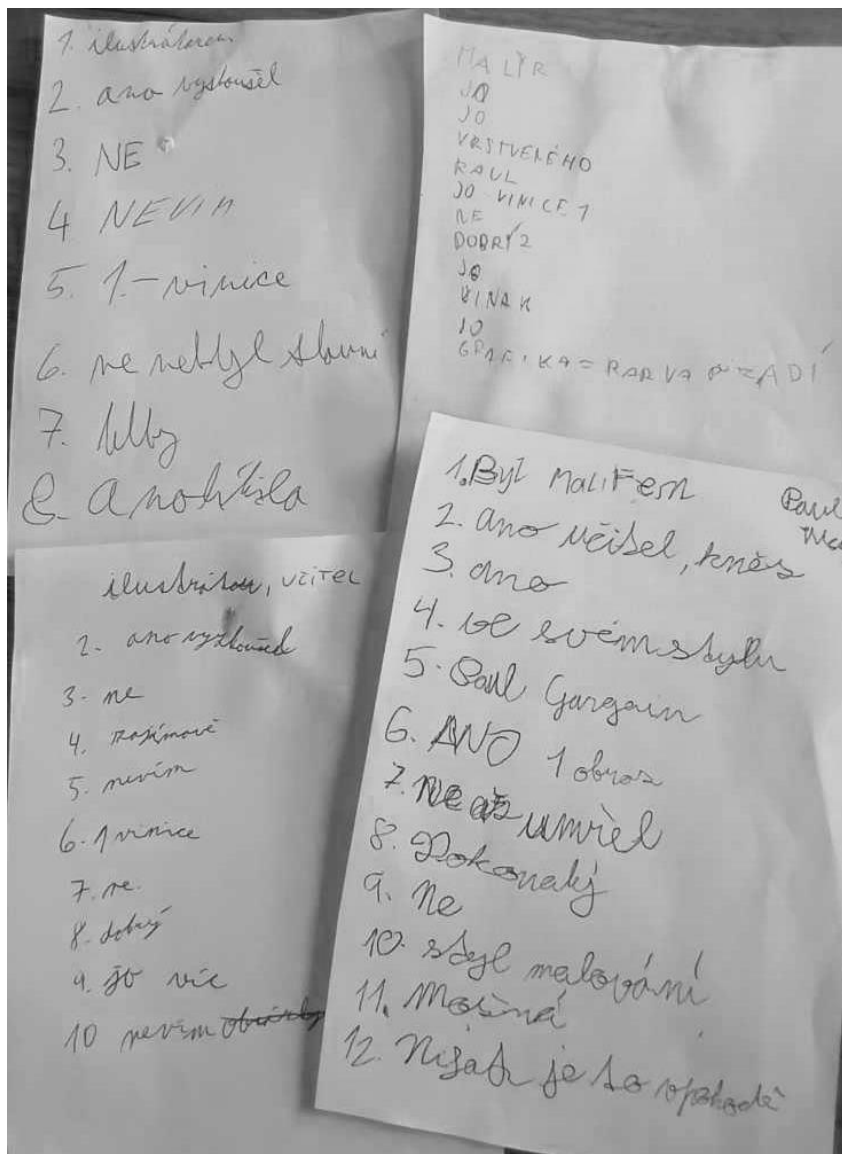 1. ilustrátorem
2. ano vyskoušel
3. NE
4 NEVIM
5. 1.-vinice
6. ne nebyl slavní
7.
8. Ano
MALÍR
JO
JO
VRSTVENÉHO
RAUL
JO VINICE 1
NE
DOBRÝ 2
JO
JINAK
JO
GRAFIKA = BARVA POZADÍ
ilustrátor, UČITEL
2. ano vyzkoušel
3. ne
4. zajímavě
5. nevím
6. 1 vinice
7. ne.
8. dobrý
9. jo víc
10 nevím
1. Byl MaLiřem
Paul
2. ano učitel, kněz
3. ano
4. ve svém stylu
5. Paul Gargain
6. ANO 1 obraz
7. Ne až umřel
8. Dokonalý
9. Ne
10. styl malování
11. Možná
12. Nijak je to vpohodě